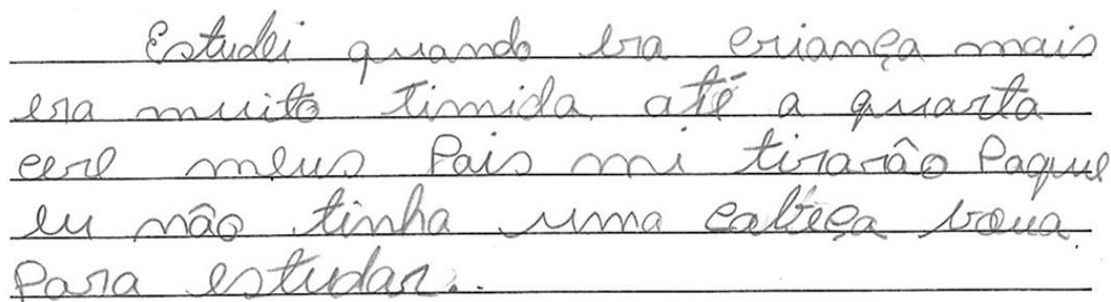 Estudei quando era criança mais
era muito timida até a quarta
cere meus Pais mi tirarão Paque
eu não tinha uma cabeça boua.
Para estudar..